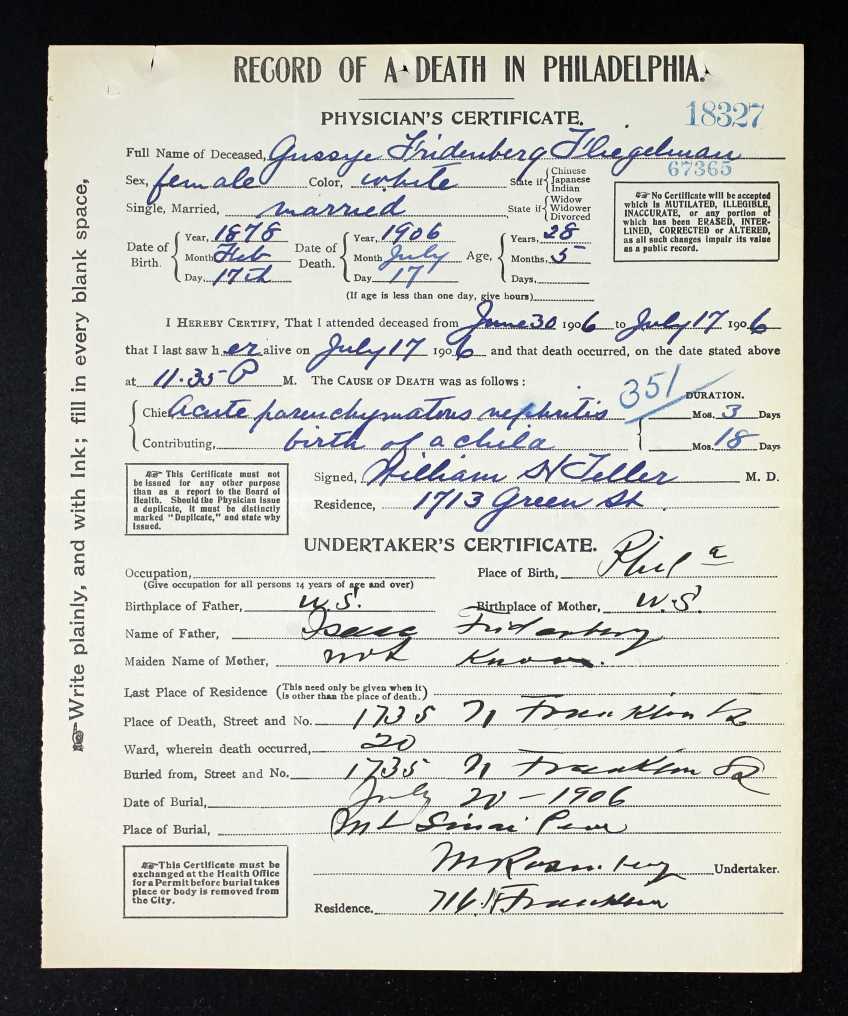 RECORD OF A DEATH IN PHILADELPHIA.
PHYSICIAN'S CERTIFICATE.
18327
Full Name of Deceased, Gussye Fridenberg Fliegelman
67365
Sex, female Color, white State if { Chinese Japanese Indian
Single, Married, married State if { Widow Widower Divorced
☞ No Certificate will be accepted
which is MUTILATED, ILLEGIBLE,
INACCURATE, or any portion of
which has been ERASED, INTER-
LINED, CORRECTED or ALTERED,
as all such changes impair its value
as a public record.
Date of Birth. { Year, 1878 Month Feb Day, 17th
Date of Death. { Year, 1906 Month July Day 17
Age, { Years, 28 Months, 5 Days,
(If age is less than one day, give hours)
I HEREBY CERTIFY, That I attended deceased from June 30 1906 to July 17 1906
that I last saw her alive on July 17 1906 and that death occurred, on the date stated above
at 11.35 P M. The CAUSE OF DEATH was as follows:
351
DURATION.
Chief Acute parenchymatous nephritis Mos. 3 Days
Contributing, birth of a child Mos. 18 Days
☞ This Certificate must not
be issued for any other purpose
than as a report to the Board of
Health. Should the Physician issue
a duplicate, it must be distinctly
marked "Duplicate," and state why
issued.
Signed, William H Teller M. D.
Residence, 1713 Green St
UNDERTAKER'S CERTIFICATE.
Occupation, Place of Birth, Phil a
(Give occupation for all persons 14 years of age and over)
Birthplace of Father, U.S. Birthplace of Mother, U.S.
Name of Father, Isaac Fridenberg
Maiden Name of Mother, not Known.
Last Place of Residence (This need only be given when it is other than the place of death.)
Place of Death, Street and No. 1735 N Franklin St
Ward, wherein death occurred, 20
Buried from, Street and No. 1735 N Franklin St
Date of Burial, July 20 - 1906
Place of Burial, Mt Sinai
☞This Certificate must be
exchanged at the Health Office
for a Permit before burial takes
place or body is removed from
the City.
M Rosenberg Undertaker.
Residence. 716 N Franklin
☞Write plainly, and with Ink; fill in every blank space,